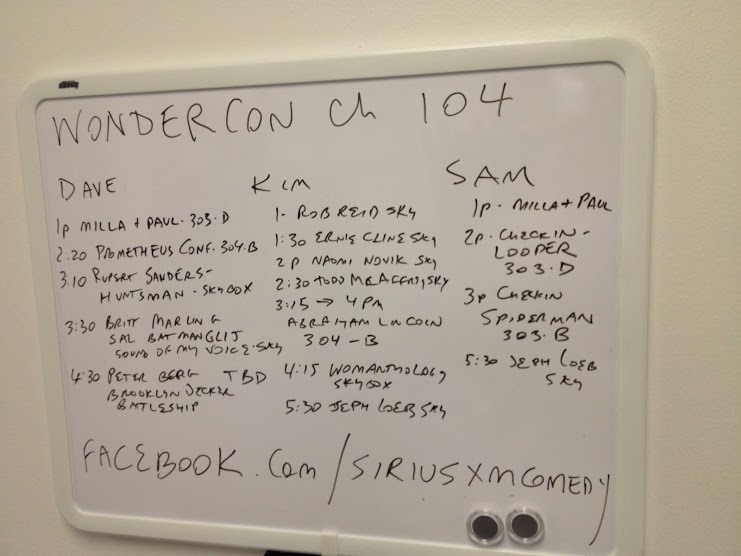 WONDERCON Ch 104
DAVE
1p MILLA + PAUL. 303.D
2:20 PROMETHEUS CONF. 304.B
3:10 RUPERT SANDERS-
HUNTSMAN - SKYBOX
3:30 BRITT MARLING
SAL BATMANGLIJ
SOUND OF MY VOICE-SKY
4:30 PETER BERG TBD
BROOKLYN DECKER
BATLESHIP
KIM
1- ROB REID SKY
1:30 ERNIE CLINE SKY
2p NAOMI NOVIK SKY
2:30 TODD McCAFFREY, SKY
3:15 → 4 PM
ABRAHAM LINCOLN
304-B
4:15 WOMANTHOLOGY
SKYBOX
5:30 JEPH LOEB SKY
SAM
1p. MILLA + PAUL
2p. CHECKIN -
LOOPER
303.D
3p CHECKIN
SPIDERMAN
303.B
5:30 JEPH LOEB
SKY
FACEBOOK.Com/SIRIUSXMCOMEDY